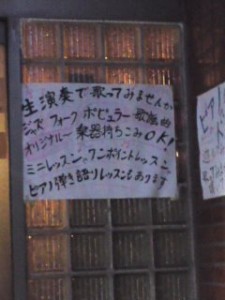 生演奏で歌ってみませんか
ジャズ フォーク ポピュラー 歌謡曲
オリジナル〜 楽器持ちこみOK!
ミニレッスン、ワンポイントレッスン、
ピアノ弾き語りレッスンもあります
ピア